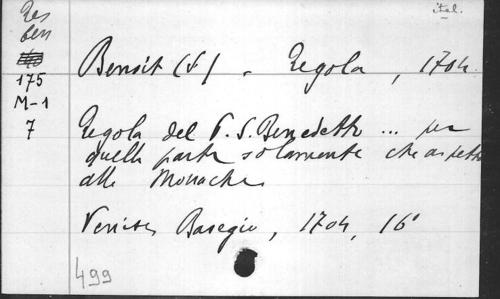 ital.
Res
175
M-1
7
Benoit (S) - Regola, 1704.
Regola del P. S. Benedetto ... per
quella parte solamente che aspetta
alle Monache
Venise, Basegio, 1704, 16°
499